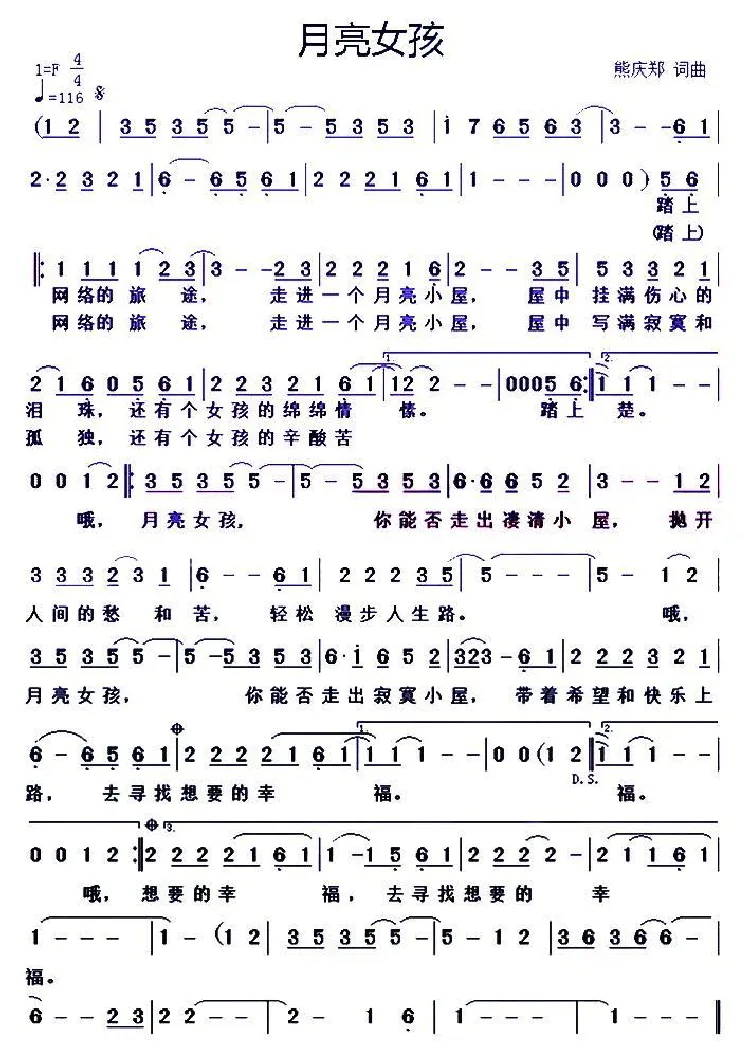 月亮女孩
1=F 4/4
熊庆郑 词曲
♩=116 𝄋
(1 2 | 3 5 3 5 5 - | 5 - 5 3 5 3 | i 7 6 5 6 3 | 3 - - 6 1 |
2· 2 3 2 1 | 6 - 6 5 6 1 | 2 2 2 2 1 6 1 | 1 - - - | 0 0 0 ) 5 6
踏上
(踏上)
‖: 1 1 1 1 2 3 | 3 - - 2 3 | 2 2 2 1 6 | 2 - - 3 5 | 5 3 3 2 1 |
网络的旅途， 走进一个月亮小屋， 屋中挂满伤心的
网络的旅途， 走进一个月亮小屋， 屋中写满寂寞和
1. 2.
2 1 6 0 5 6 1 | 2 2 3 2 1 6 1 | 1 2 2 - - | 0 0 0 5 6 :‖ 1 1 1 - |
泪珠，还有个女孩的绵绵情愫。 踏上楚。
孤独，还有个女孩的辛酸苦
0 0 1 2 ‖: 3 5 3 5 5 - | 5 - 5 3 5 3 | 6· 6 6 5 2 | 3 - - 1 2 |
哦，月亮女孩， 你能否走出凄清小屋， 抛开
3 3 3 2 3 1 | 6 - - 6 1 | 2 2 2 2 3 5 | 5 - - - | 5 - 1 2 |
人间的愁和苦， 轻松漫步人生路。 哦，
3 5 3 5 5 - | 5 - 5 3 5 3 | 6· i 6 5 2 | 3 2 3 - 6 1 | 2 2 2 3 2 1 |
月亮女孩， 你能否走出寂寞小屋， 带着希望和快乐上
1. 2.
6 - 6 5 6 1 | 2 2 2 2 1 6 1 | 1 1 1 - | 0 0 (1 2 ‖ 1 1 1 - |
D.S.
路， 去寻找想要的幸福。 福。
3.
0 0 1 2 :‖ 2 2 2 2 1 6 1 | 1 - 1 5 6 1 | 2 2 2 2 - | 2 1 1 6 1 |
哦，想要的幸福，去寻找想要的幸
1 - - - | 1 - (1 2 | 3 5 3 5 5 | 5 - 1 2 | 3 6 3 6 6 |
福。
6 - - 2 3 | 2 - - 2 | 2 - 1 6 | 1 - - - | 1 - - - ‖